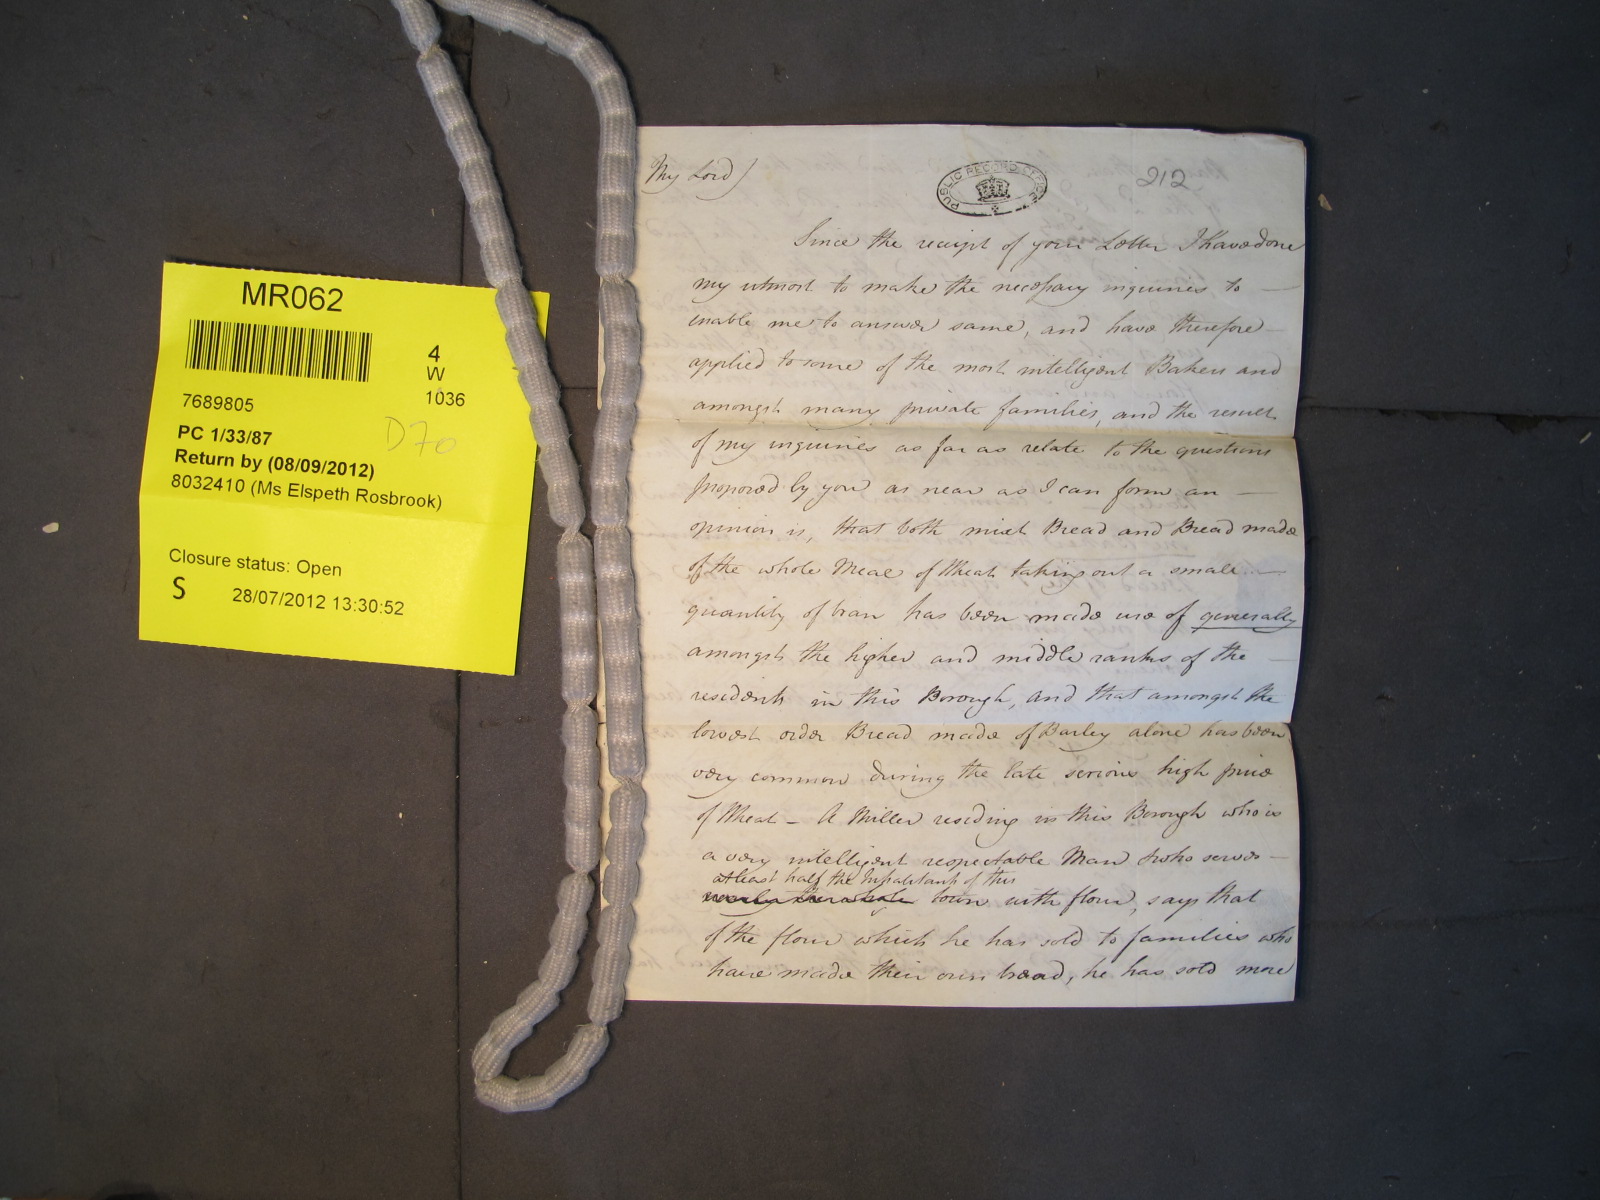 MR062
4
W
1036
7689805
D70
PC 1/33/87
Return by (08/09/2012)
8032410 (Ms Elspeth Rosbrook)
Closure status: Open
S 28/07/2012 13:30:52
My Lord/
PUBLIC RECORD OFFICE
212
Since the receipt of your Letter I have done
my utmost to make the necessary inquiries to —
enable me to answer same, and have therefore —
applied to some of the most intelligent Bakers and
amongst many private families, and the result
of my inquiries as far as relate to the questions
proposed by you as near as I can form an —
opinion is, that both mixt Bread and Bread made
of the whole Meal of Wheat taking out a small —
quantity of bran has been made use of generally
amongst the higher and middle ranks of the —
residents in this Borough, and that amongst the
lowest order Bread made of Barley alone has been
very common during the late serious high price
of Wheat – A Miller residing in this Borough who is
a very intelligent respectable Man & who serves —
at least half the Inhabitants of this
nearly the whole town with flour, says that
of the flour which he has sold to families who
have made their own bread, he has sold more